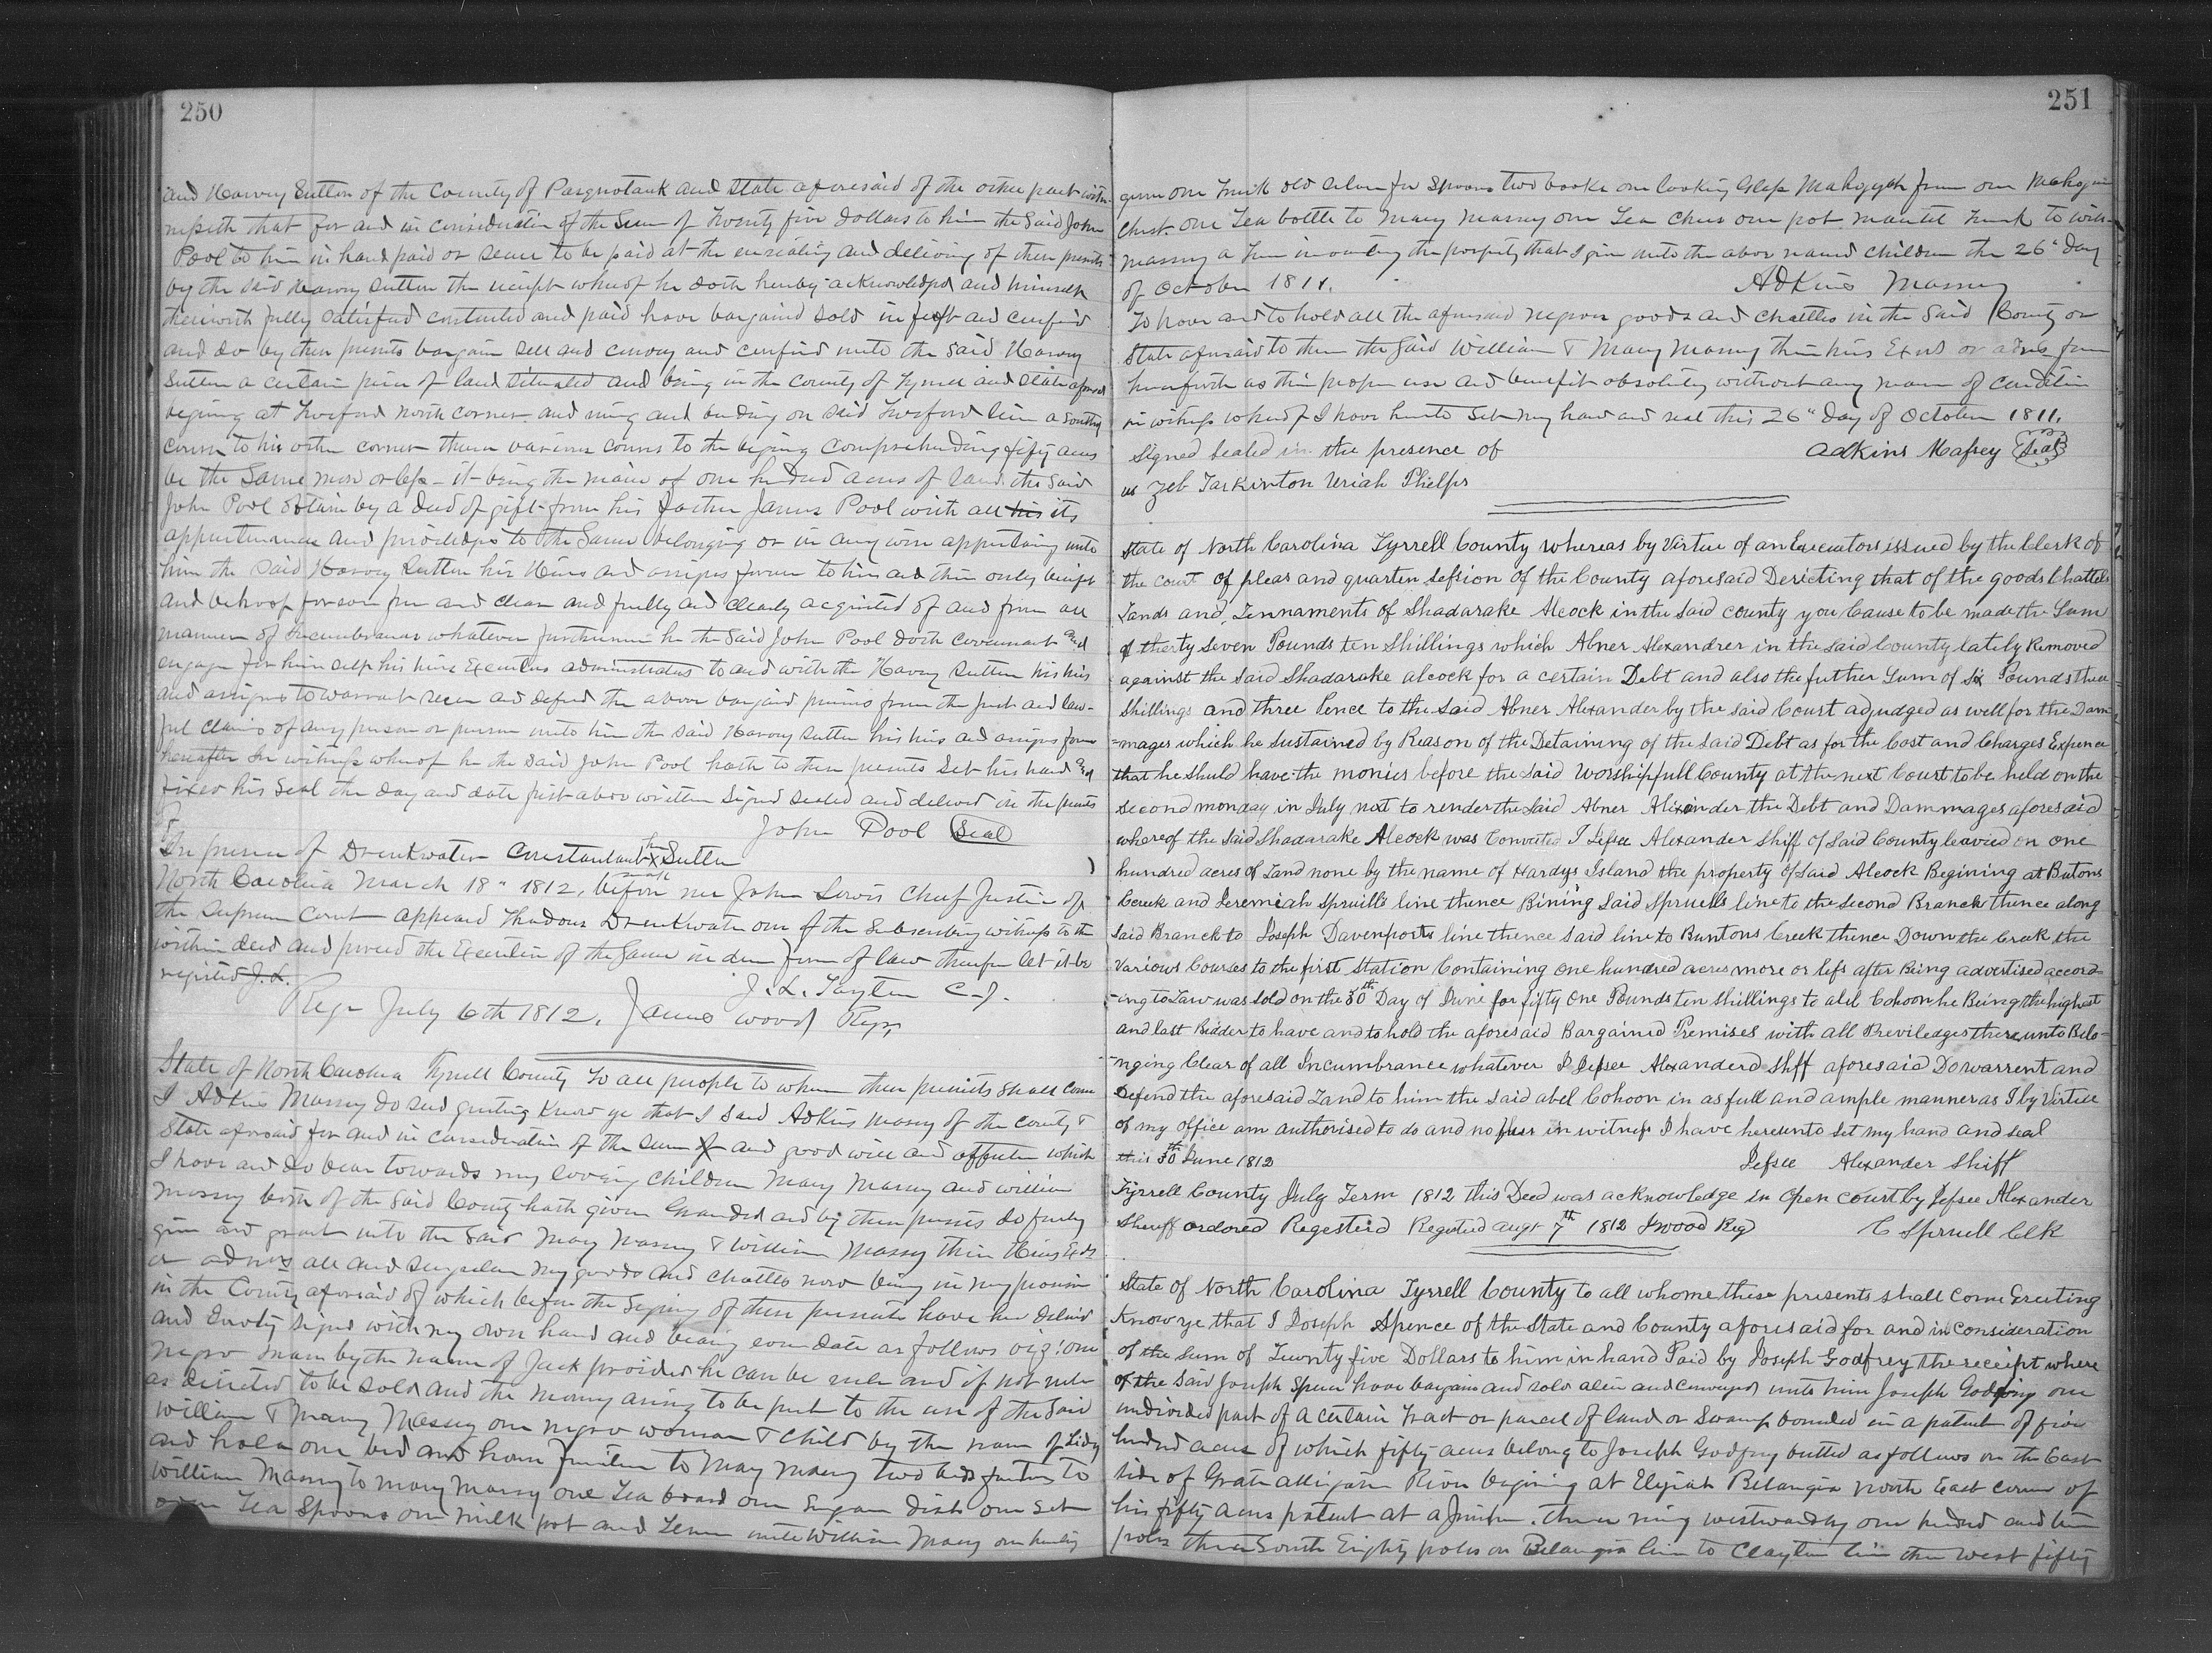 250
and Harvey Sutton of the County of Pasquotank and State aforesaid of the other part witn-
nesseth that for and in consideration of the Sum of Twenty five Dollars to him the Said John
Pool to him in hand paid or secure to be paid at the ensealing and delivery of these presents
by the said Harvey Sutton the receipt whereof he doth hereby acknowledged and himself
therewith fully Satisfied contented and paid have bargained Sold and confirmed
and do by these presents bargain Sell and convey and confirm unto the Said Harvey
Sutton a certain piece of land situated and being in the County of Tyrrell and State aforesd
begining at Twiford north corner and runing and binding on said Twiford line a Southly
course to his other corner thence various courses to the begining Comprehending fifty acres
be the Same more or less - it being the of one hundred acres of Land the Said
John Pool obtain by a deed of gift from his father James Pool with all his its
appurtenances and priviledges to the Same belonging or in any wise appertaining unto
him the Said Harvey Sutton his Heirs and assigns forever to him and their only benefit
and behoof forever free and clear and fully and clearly acquited of and from all
manner of Incumbrances whatever furthermore he the Said John Pool doth covenant and
engage for him self his heirs Executors administrators to and with the Harvey Sutton his heirs
and assigns to warrant secure and defend the above bargaind premises from the just and law-
ful claims of any person or persons unto him the said Harvey Sutton his heirs and assigns forever
hereafter In witness whereof he the Said John Pool hath to these presents Set his hand and
fixed his Seal the day and date first above written Signed Sealed and delivered in the presents
John Pool Seal
In presence of Drinkwater Constantant his X mark Sutton
North Carolina March 18" 1812. before me John Lewis Chief Justice of
the Supreme Court appeard Drinkwater one of the Subscribing witness to the
within deed and proved the Execution of the Same in due form of law therefore let it be
registed J. L.
J. L. Taylor C. J.
Regr July 6th 1812. James Wood Regr
State of North Carolina Tyrrell County To all people to whom these presents Shall Come
I Adkins Massey do Send greeting Know ye that I said Adkins Massey of the County &
State aforesaid for and in consideration of the Sum of and good will and affection which
I have and do bear towards my loving children Mary Massey and William
Massey both of the Said County hath given Granded and by these presents do freely
give and grant unto the Said Mary Massey & William Massey their Heirs Exds
or admrs all and Singular my goods and chattles now being in my possession
in the County aforesaid of which before the Signing of these presents have her Deliverd
and Signed with my own hand and bearing even date as follows viz: one
Negro man by the name of Jack provided he can be and if not
as directed to be sold and the money arising to be put to the use of the Said
William & Mary Massey one negro woman & child by the name of Lidy
and one bed and furniture to Mary Massey two beds furniture to
William Massey to Mary Massey one Tea board one Sugar Dish one Set
Tea Spoons one milk pot and unto William Massey one
251
one Trunk old Silver Spoons two books one looking Glass Mahogyoh from one Mahogin
Chest. one Tea bottle to Mary Massey one Tea Chest one pot mantel Trunk to Will-
Massey a True inventory the property that I give unto the above named children the 26" Day
of October 1811.
Adkins Massey
To have and to hold all the aforesaid negroes goods and chattles in the Said County or
State aforesaid to them the Said William & Mary Massey their heirs Exrs or adms from
henceforth as their proper use and benefit absolutely without any manner of condition
in witness whereof I have hereunto Set my hand and seal this 26" Day of October 1811.
Signed Sealed in the presence of
Adkins Massey Seal
us Zeb Tarkinton Uriah Phelps
State of North Carolina Tyrrell County whereas by Virtue of an Execuators issued by the Clerk of
the court of pleas and quarten session of the County aforesaid Derecting that of the goods Chattels
Lands and Tennaments of Shadarake Alcock in the said county you Cause to be made the Sum
of therty Seven Pounds ten Shillings which Abner Alexandrer in the said County lately Removed
against the said Shadarake alcock for a certain Debt and also the futher Sum of six Pounds three
Shillings and three Pence to the said Abner Alexander by the said Court adjudged as well for the Dam
-mages which he Sustained by Reason of the Detaining of the said Debt as for the Cost and Charges Expence
that he Shuld have the monies before the said Worshipfull County at the next Court to be held on the
second monday in July next to render the said Abner Alixander the Debt and Dammages aforesaid
whereof the said Shadarake Alcock was Convicted I Jessee Alexander Shiff of Said County leavied on one
hundred acres of Land none by the name of Hardys Island the property of said Alcock Begining at Butons
Creek and Jeremiah Spruills line thence Bining Said Spruells line to the second Branch thence along
Said Branck to Joseph Davenports line thence said line to Buntons Creek thence Down the Creek the
Various Courses to the first Station Containing one hundred acres more or less after Being advertised accord-
-ing to Law was Sold on the 30th Day of June for fifty One Pounds ten shillings to abel Cohoon he Being the highest
and last Bidder to have and to hold the aforesaid Bargained Premises with all Previledges there unto Belo-
-nging Clear of all Incumbrance whatever I Jessee Alexanderd Shff aforesaid Do warrent and
Defend the aforesaid Land to him the said abel Cohoon in as full and ample manner as I by Virtue
of my office am authorised to do and no futher in witness I have hereunto set my hand and seal
this 30th June 1812
Jessee Alexander Shiff
Tyrrell County July Term 1812 this Deed was acknowledge in open court by Jessee Alexander
Sheriff ordored Regesterd Registied augt 7th 1812 J wood Reg
C Spruell Clk
State of North Carolina Tyrrell County to all whome these presents shall Come Greeting
Know ye that I Joseph Spence of the State and County aforesaid for and in Consideration
of the Sum of Twenty five Dollars to him in hand Paid by Joseph Godfrey the receipt where
of the said Joseph Spence have bargain and sold alein and conveyed unto him Joseph Godfrey one
undivided part of a certain Tract or parcel of land or Swamp bounded in a patent of five
hundred acres of which fifty acres belong to Joseph Godfrey butted as follows on the East
Side of Grate alligator River begining at Elijah Belangia North East corner of
his fifty acres patent at a Juniper. thence runing westwardly one hundred and ten
poles thence South Eighty poles on Belangia line to Clayton line then West fifty